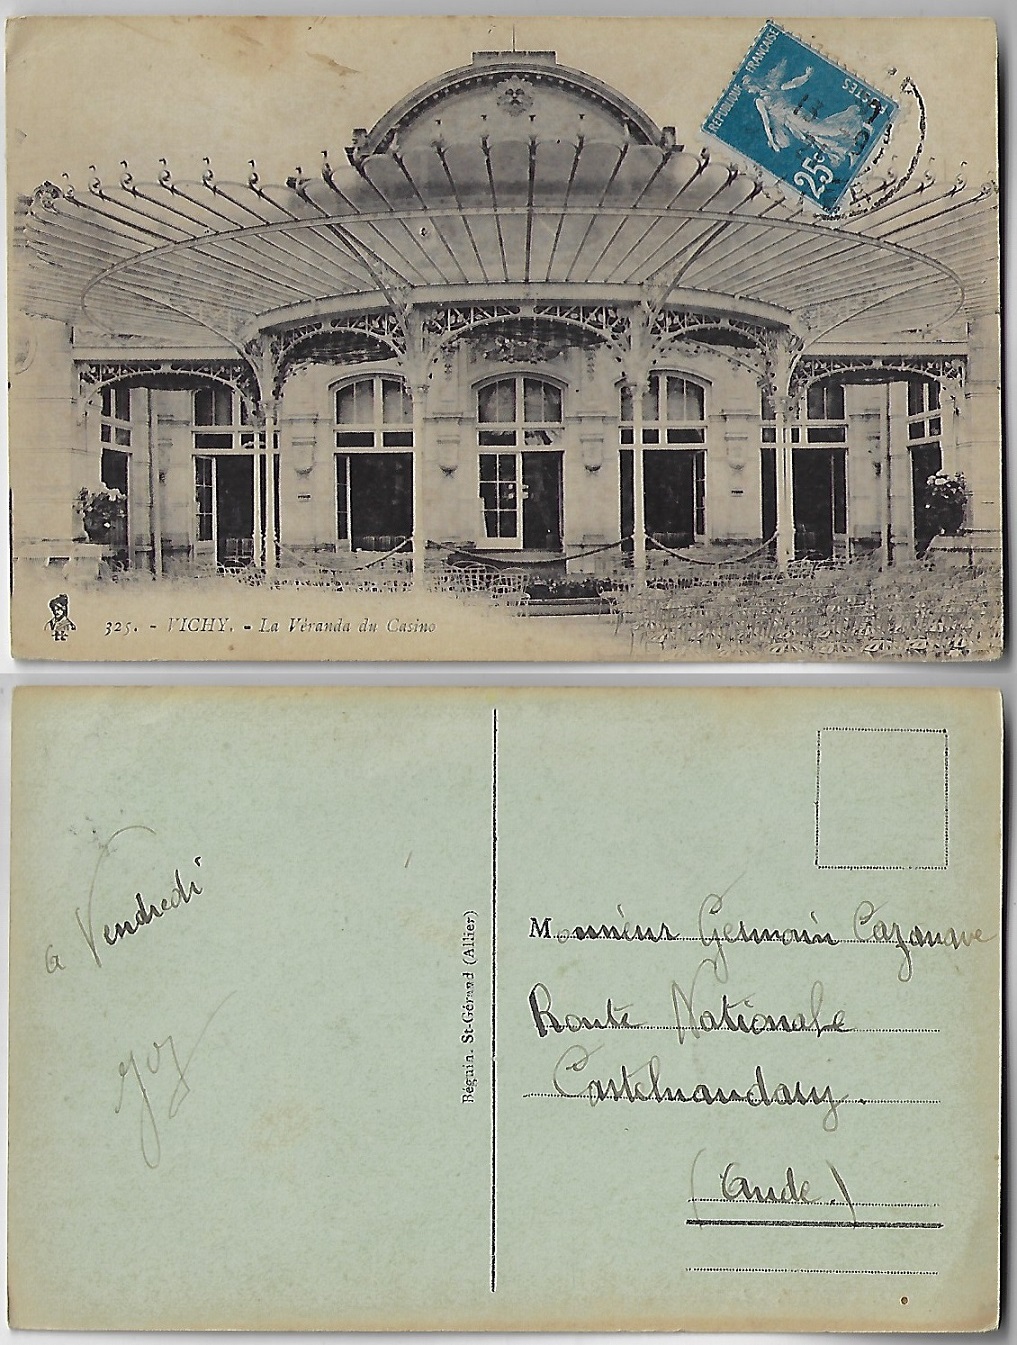 RÉPUBLIQUE FRANÇAISE
POSTES
25c
325. - VICHY. - La Véranda du Casino
a Vendredi
Béguin. St-Gérand (Allier)
Monsieur Germain Cazanave
Route Nationale
Castelnaudary.
(Aude.)